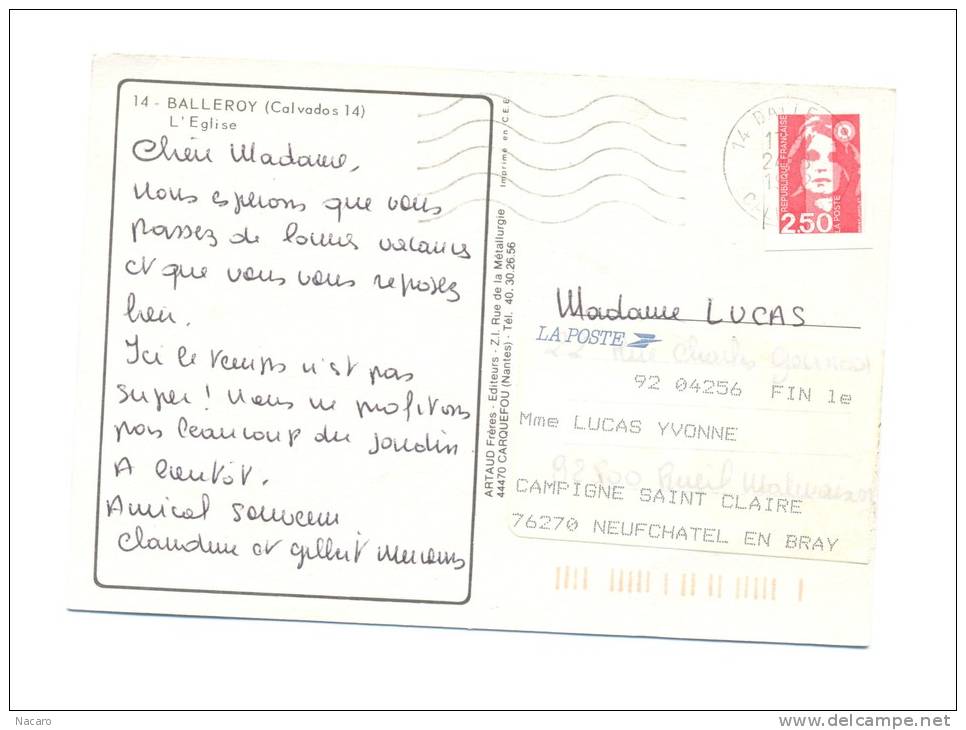 14 - BALLEROY (Calvados 14)
L'Eglise
Chère Madame,
Nous espérons que vous
passez de bonnes vacances
et que vous vous reposez
bien.
Ici le temps n'est pas
super ! Nous ne profitons
pas beaucoup du jardin.
A bientôt.
Amical souvenir
Claudine et Gilbert
ARTAUD Frères - Editeurs - Z.I. Rue de la Métallurgie
44470 CARQUEFOU (Nantes) - Tél. 40.30.26.56
Imprimé en C.E.E.
14 BALLE
REPUBLIQUE FRANÇAISE
LA POSTE
2,50
Madame LUCAS
LA POSTE
22 Rue Charles
92 04256 FIN 1e
Mme LUCAS YVONNE
92500 Rueil Malmaison
CAMPIGNE SAINT CLAIRE
76270 NEUFCHATEL EN BRAY
Nacaro
www.delcampe.net